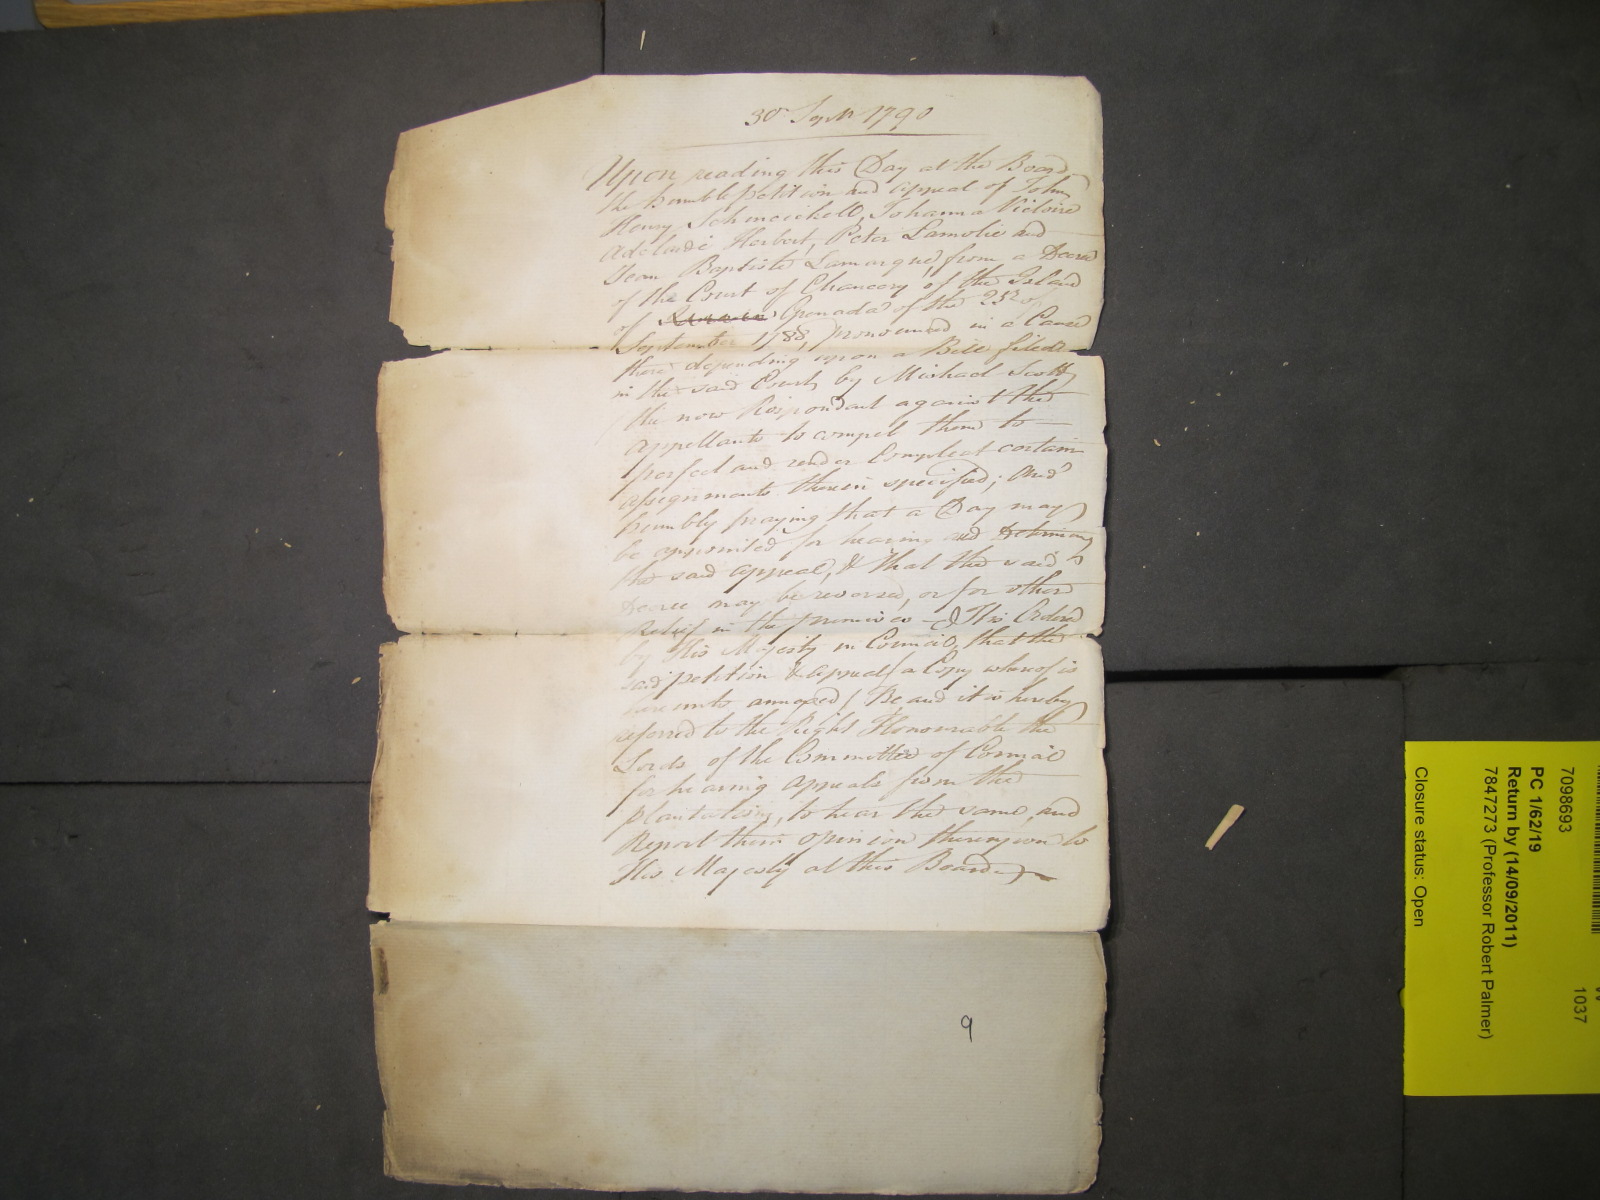 30th Septr 1790
Upon reading this Day at the Board
the humble petition and appeal of John
Henry Johanna Victoire
Adelaide Herbert, Peter Lamolie and
Jean Baptiste Lamarque from a Decree
of the Court of Chancery of the Island
of Grenada of the 25th of
September 1788, pronounced in a Cause
there depending upon a Bill filed
in the said Court by Michael Scott
the now Respondent against the
appellants to compel them to
perfect and render Compleat certain
assignments therein specified; And
humbly praying that a Day may
be appointed for hearing and Determing
the said appeal, & that the said
Decree may be reversed, or for other
relief in the premises - It is Ordered
by His Majesty in Council, that the
said petition & appeal (a Copy whereof is
hereunto annexed) Be and it is hereby
referred to the Right Honourable the
Lords of the Committee of Council
for hearing appeals from the
plantations, to hear the same, and
Report their opinion thereupon to
His Majesty at this Board
9
7098693
1037
PC 1/62/19
Return by (14/09/2011)
7847273 (Professor Robert Palmer)
Closure status: Open